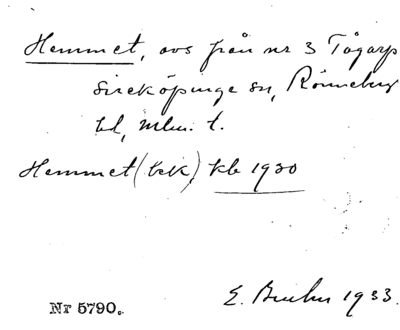 Hemmet, avs från nr 3 Tågarp
Sireköpinge sn, Rönneberg
hd, Mlm. l.
Hemmet (bek) kb 1930
Nr 5790. E. Bruhn 1933.